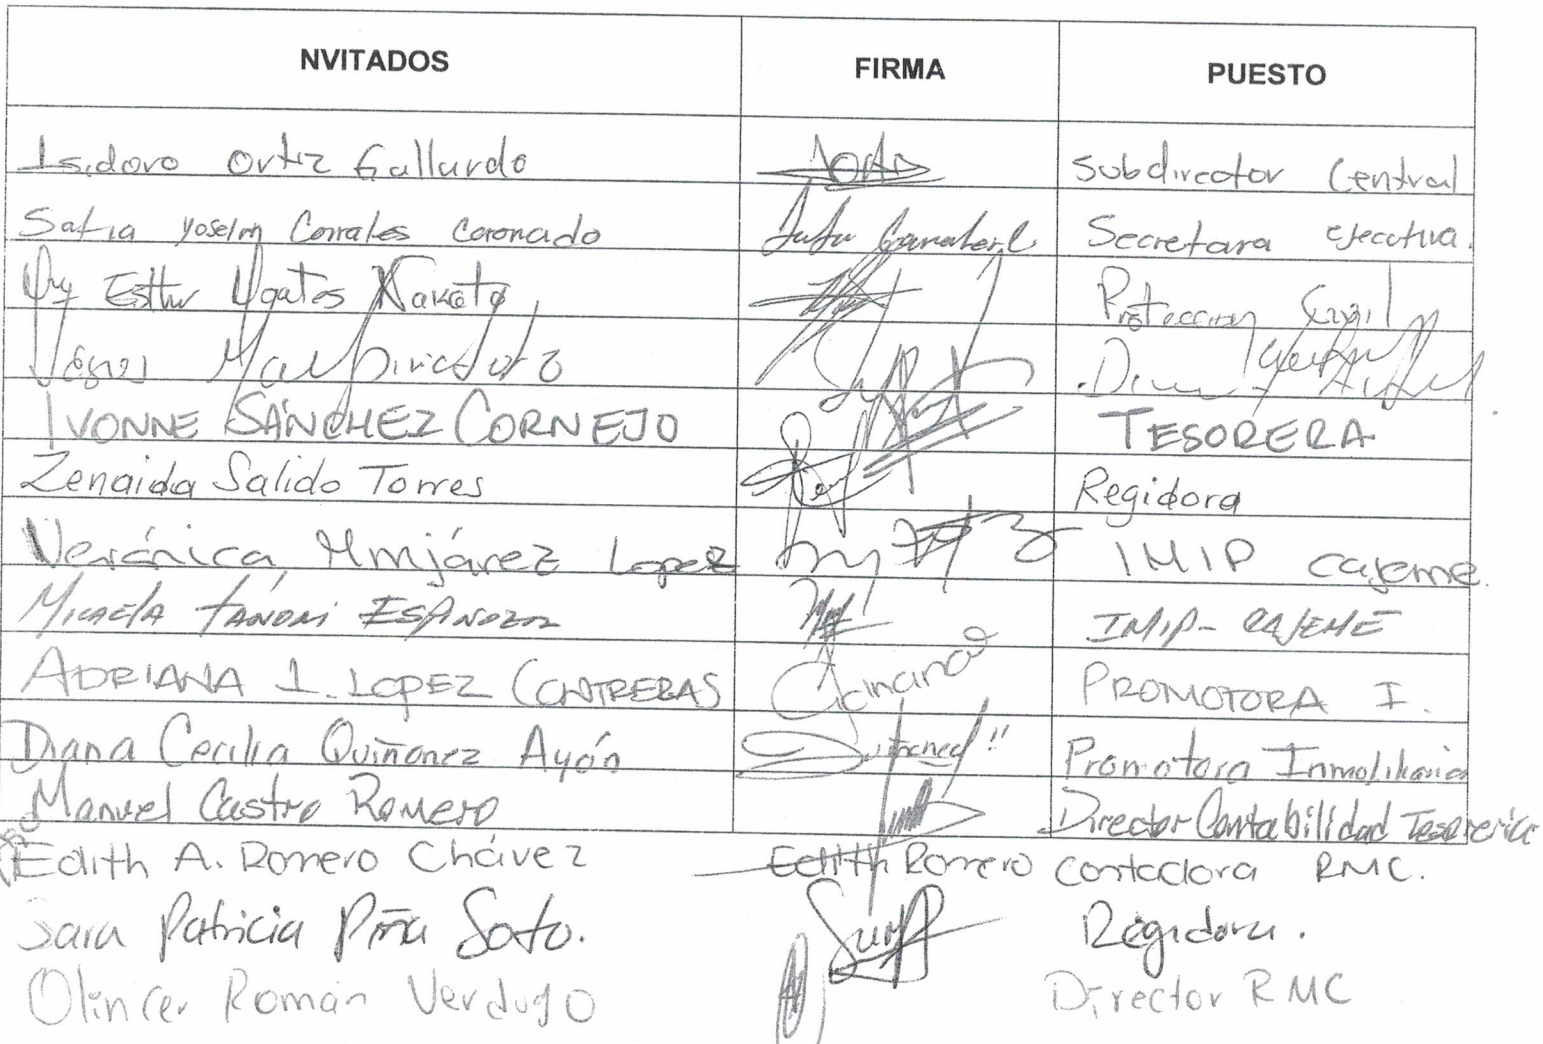 NVITADOS FIRMA PUESTO
Isidoro Ortiz Gallardo Subdirector Central
Safia Yoselin Corrales Coronado Secretara ejecutiva.
Esther Protección Civil
IVONNE SÁNCHEZ CORNEJO TESORERA
Zenaida Salido Torres Regidora
Verónica Lopez IMIP cajeme.
MICAELA TÁNORI ESPINOZA IMIP- CAJEME
ADRIANA I. LOPEZ CONTRERAS PROMOTORA I.
Diana Cecilia Quiñonez Ayón Promotora Inmobiliaria
Manuel Castro Romero Director Contabilidad
Edith A. Romero Chávez Edith Romero Contadora RMC.
Sara Patricia Piña Soto. Regidora.
Román Verdugo Director RMC